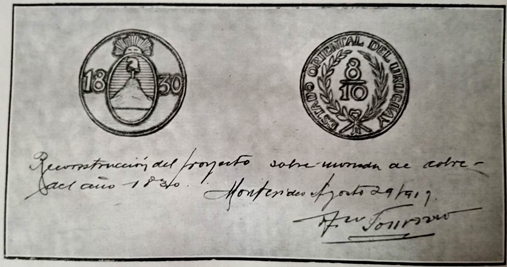 1830
ESTADO ORIENTAL DEL URUGUAY
8/10
Reconstrucción del proyecto sobre moneda de cobre
del año 1830.
Montevideo Agosto 29/919